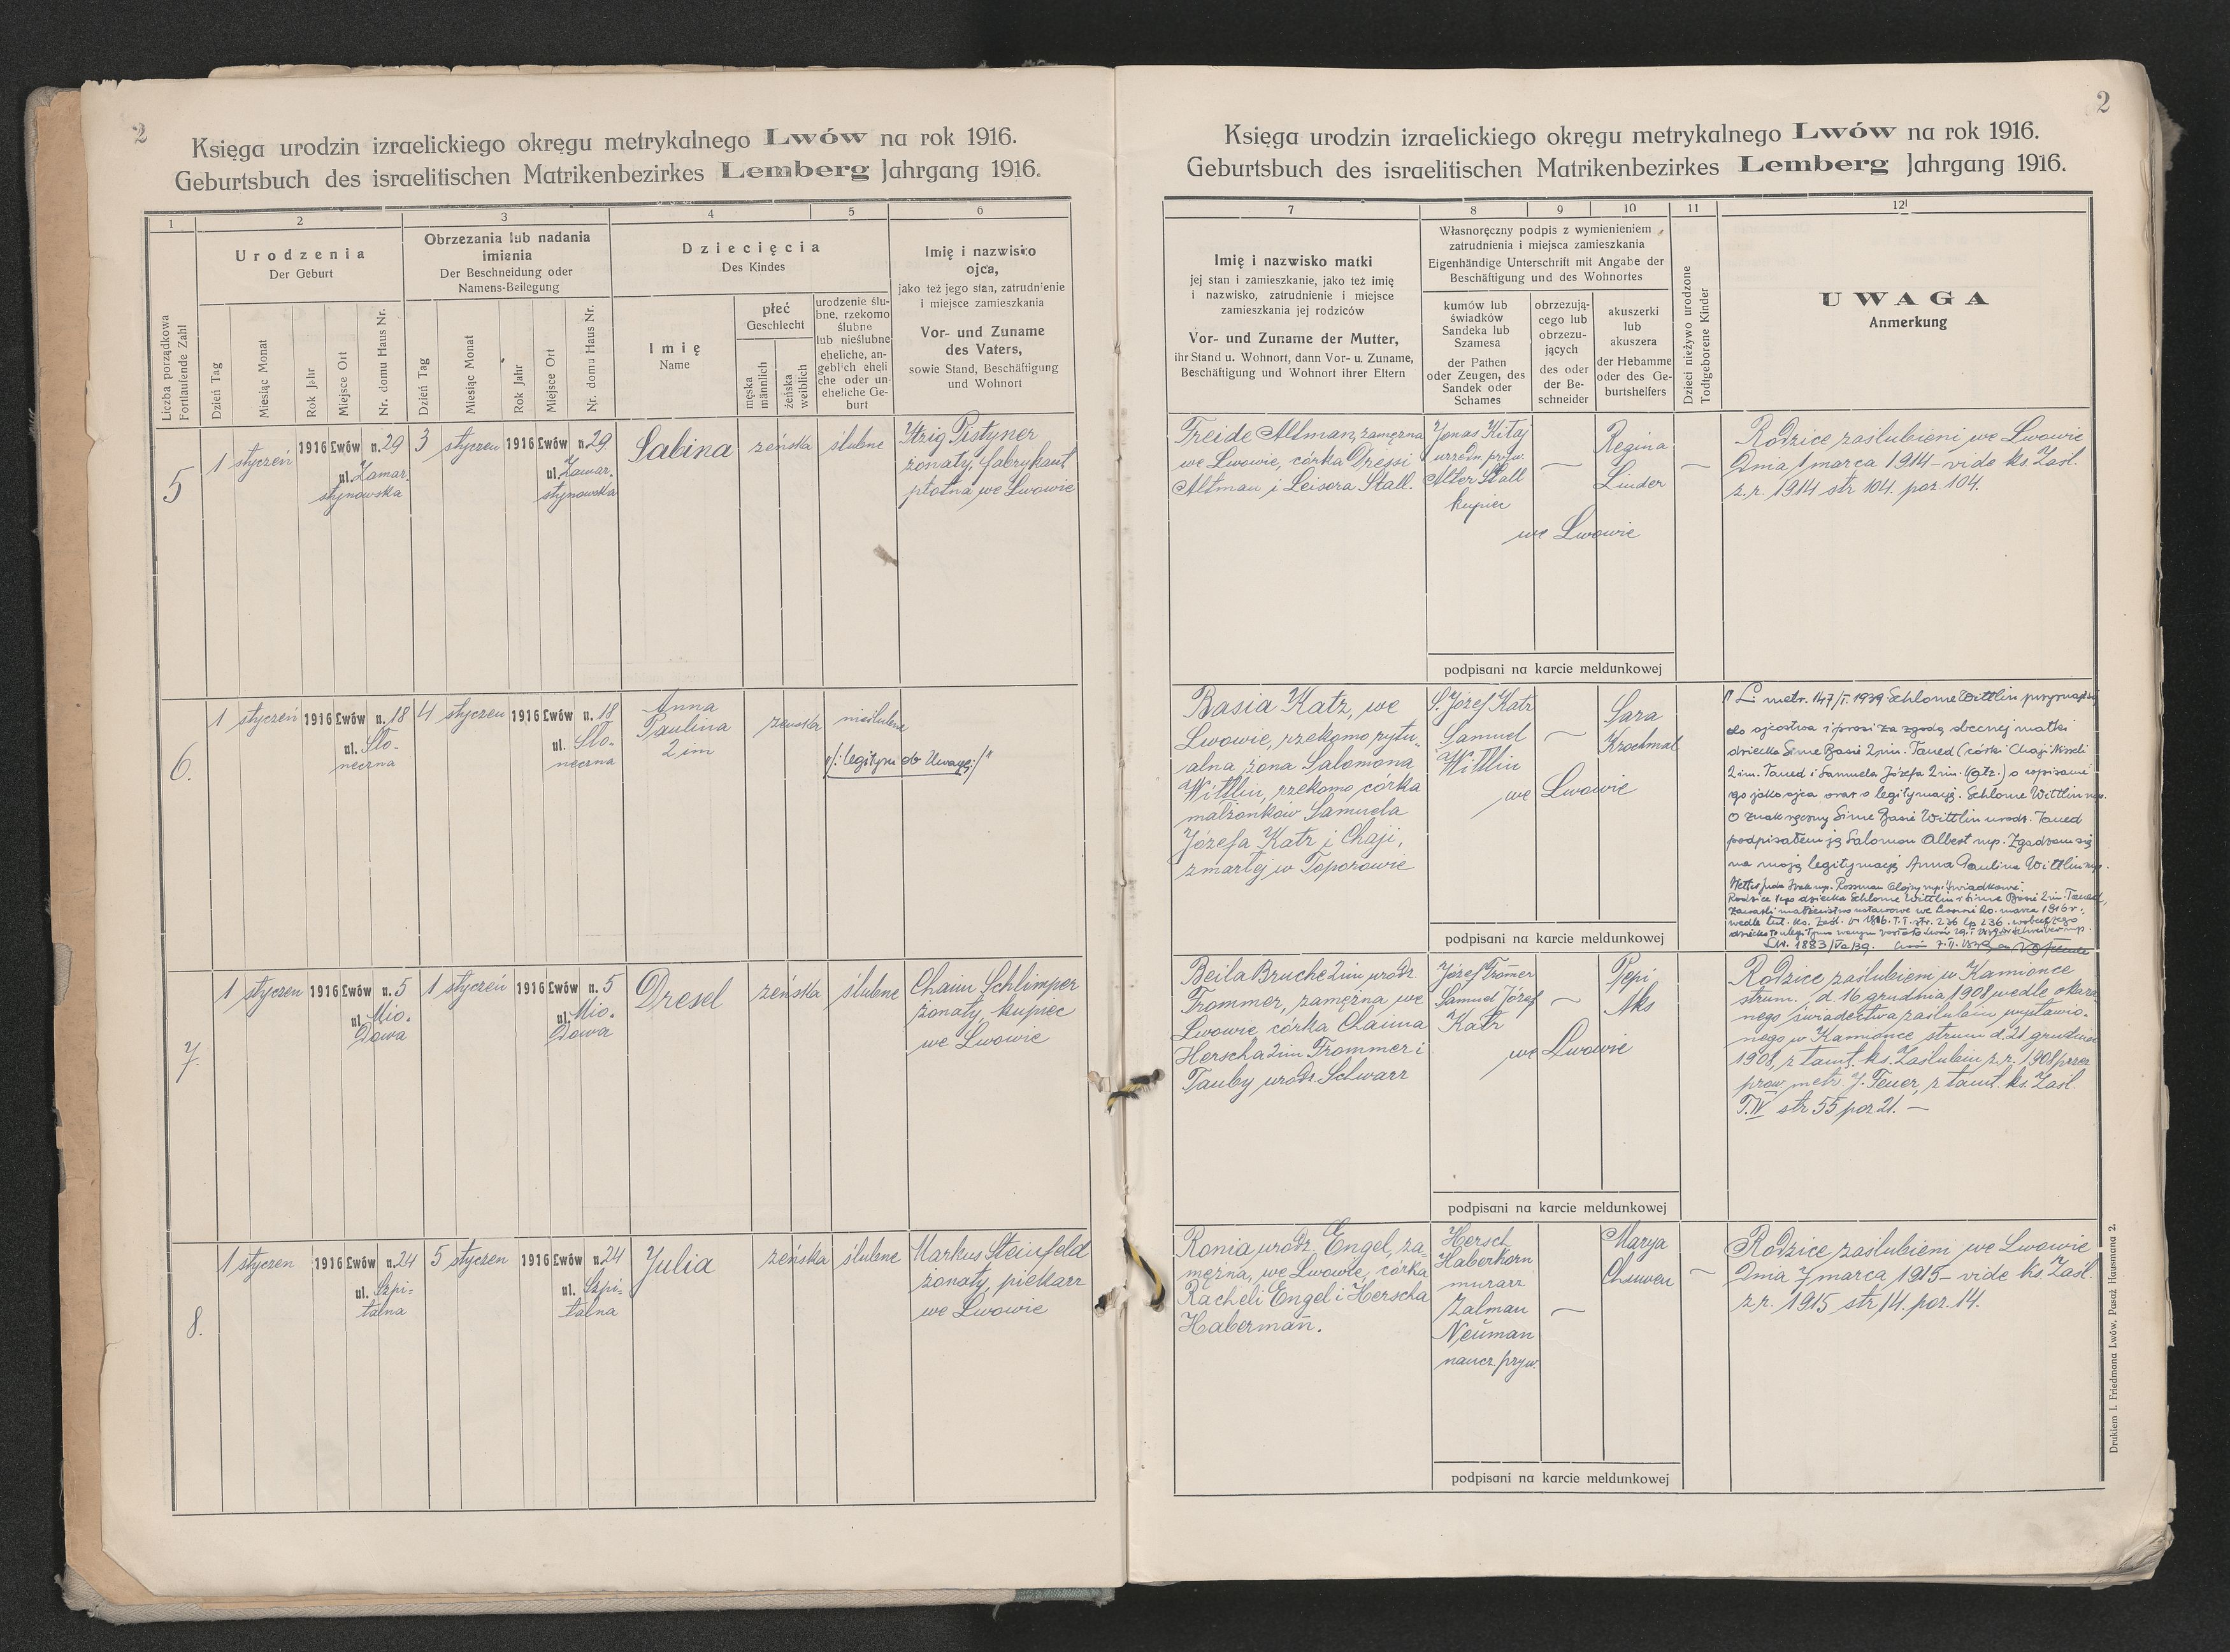 2
Księga urodzin izraelickiego okręgu metrykalnego Lwów na rok 1916.
Geburtsbuch des israelitischen Matrikenbezirkes Lemberg Jahrgang 1916.
1
2
3
4
5
6
Liczba porządkowa
Fortlaufende Zahl
Urodzenia
Der Geburt
Dzień Tag
Miesiąc Monat
Rok Jahr
Miejsce Ort
Nr. domu Haus Nr.
Obrzezania lub nadania
imienia
Der Beschneidung oder
Namens-Beilegung
Dzień Tag
Miesiąc Monat
Rok Jahr
Miejsce Ort
Nr. domu Haus Nr.
Dziecięcia
Des Kindes
Imię
Name
płeć
Geschlecht
męska
männlich
żeńska
weiblich
urodzenie ślu-
bne, rzekomo
ślubne
lub nieślubne
eheliche, an-
geblich eheli
che oder un-
eheliche Ge-
burt
Imię i nazwisko
ojca,
jako też jego stan, zatrudnienie
i miejsce zamieszkania
Vor- und Zuname
des Vaters,
sowie Stand, Beschäftigung
und Wohnort
5
1 styczeń 1916 Lwów n. 29
ul. Zamar.
stynowska
3 styczeń 1916 Lwów n. 29
ul. Zamar.
stynowska
Sabina
żeńska
ślubne
Itzig Pistyner
żonaty, fabrykant
płótna we Lwowie
6.
1 styczeń 1916 Lwów n. 18
ul. Sło-
neczna
4 styczeń 1916 Lwów n. 18
ul. Sło-
neczna
Anna
Paulina
2 im
żeńska
nieślubne
/: legitym do Uwagę :/
7.
1 styczeń 1916 Lwów n. 5
ul. Mio-
dowa
1 styczeń 1916 Lwów n. 5
ul. Mio-
dowa
Dresel
żeńska
ślubne
Chaim Schlimper
żonaty, kupiec
we Lwowie
8.
1 styczeń 1916 Lwów n. 24
ul. Szpi-
talna
5 styczeń 1916 Lwów n. 24
ul. Szpi-
talna
Julia
żeńska
ślubne
Markus Steinfeld
żonaty, piekarz
we Lwowie
2
Księga urodzin izraelickiego okręgu metrykalnego Lwów na rok 1916.
Geburtsbuch des israelitischen Matrikenbezirkes Lemberg Jahrgang 1916.
7
8
9
10
11
12
Imię i nazwisko matki
jej stan i zamieszkanie, jako też imię
i nazwisko, zatrudnienie i miejsce
zamieszkania jej rodziców
Vor- und Zuname der Mutter,
ihr Stand u. Wohnort, dann Vor- u. Zuname,
Beschäftigung und Wohnort ihrer Eltern
Własnoręczny podpis z wymienieniem
zatrudnienia i miejsca zamieszkania
Eigenhändige Unterschrift mit Angabe der
Beschäftigung und des Wohnortes
kumów lub
świadków
Sandeka lub
Szamesa
der Pathen
oder Zeugen, des
Sandek oder
Schames
obrzezują-
cego lub
obrzezu-
jących
des oder
der Be-
schneider
akuszerki
lub
akuszera
der Hebamme
oder des Ge-
burtshelfers
Dzieci nieżywo urodzone
Todtgeborene Kinder
UWAGA
Anmerkung
Freide Altman, zamężna
we Lwowie, córka Dressi
Altman i Leisora Stall.
Jonas Kitaj
urzędn. pryw.
Alter Stall
kupiec
we Lwowie
Regina
Linder
Rodzice zaślubieni we Lwowie
dnia 1 marca 1914 - vide ks. Zaśl.
z. r. 1914 str 104. poz. 104.
podpisani na karcie meldunkowej
Basia Katz, we
Lwowie, rzekomo rytu-
alna żona Salomona
Wittlin, rzekomo córka
małżonków Samuela
Józefa Katz i Chaji,
zmarłej w Toporowie
S. Józef Katz
Samuel
Wittlin
we Lwowie
Sara
Krochmal
L: metr. 147/I. 1939 Schlome Wittlin przyznaje się
do ojcostwa i prosi za zgodą obecnej matki
dziecka Sime Basie 2 im. Taued (córki Chaji
2 im. Taued i Samuela Józefa 2 im. Katz.) o wpisanie
go jako ojca oraz o legitymację. Schlome Wittlin mp.
O znak ręczny Sime Basie Wittlin urodz. Taued
podpisałem ją Salomon Albert mp. Zgadzam się
na moją legitymację Anna Paulina Wittlin mp.
Rodzice tego dziecka Schlome Wittlin i Sime Basie 2 im. Taued,
zawarli małżeństwo ustawowe we Lwowie 20. marca 1916 r.,
L.W. 1883/Va/39.
podpisani na karcie meldunkowej
Beila Bruche 2 im urodz.
Trommer, zamężna we
Lwowie córka Chaima
Herscha 2 im Trommer i
Tauby urodz. Schwarz
Józef Tromer
Samuel Józef
Katz
we Lwowie
Pepi
Aks
Rodzice zaślubieni w Kamionce
strum. d. 16 grudnia 1908 wedle okaza
nego świadectwa zaślubin wystawio-
nego w Kamionce strum d. 21 grudnia
1908, z tamt. ks. Zaślubin z. r. 1908 przez
prow. metr. J. Feuer, z tamt. ks. Zaśl.
T. IV str 55 poz 21. -
podpisani na karcie meldunkowej
Ronia urodz. Engel, za-
mężna, we Lwowie, córka
Racheli Engel i Herscha
Haberman.
Hersch
Haberkorn
murarz
Zalman
Neuman
naucz. pryw.
Marya
Chuwen
Rodzice zaślubieni we Lwowie
dnia 7 marca 1915 - vide ks. Zaśl.
z r. 1915 str, 14. poz. 14.
podpisani na karcie meldunkowej
Drukiem I. Friedmana Lwów, Pasaż Hausmana 2.